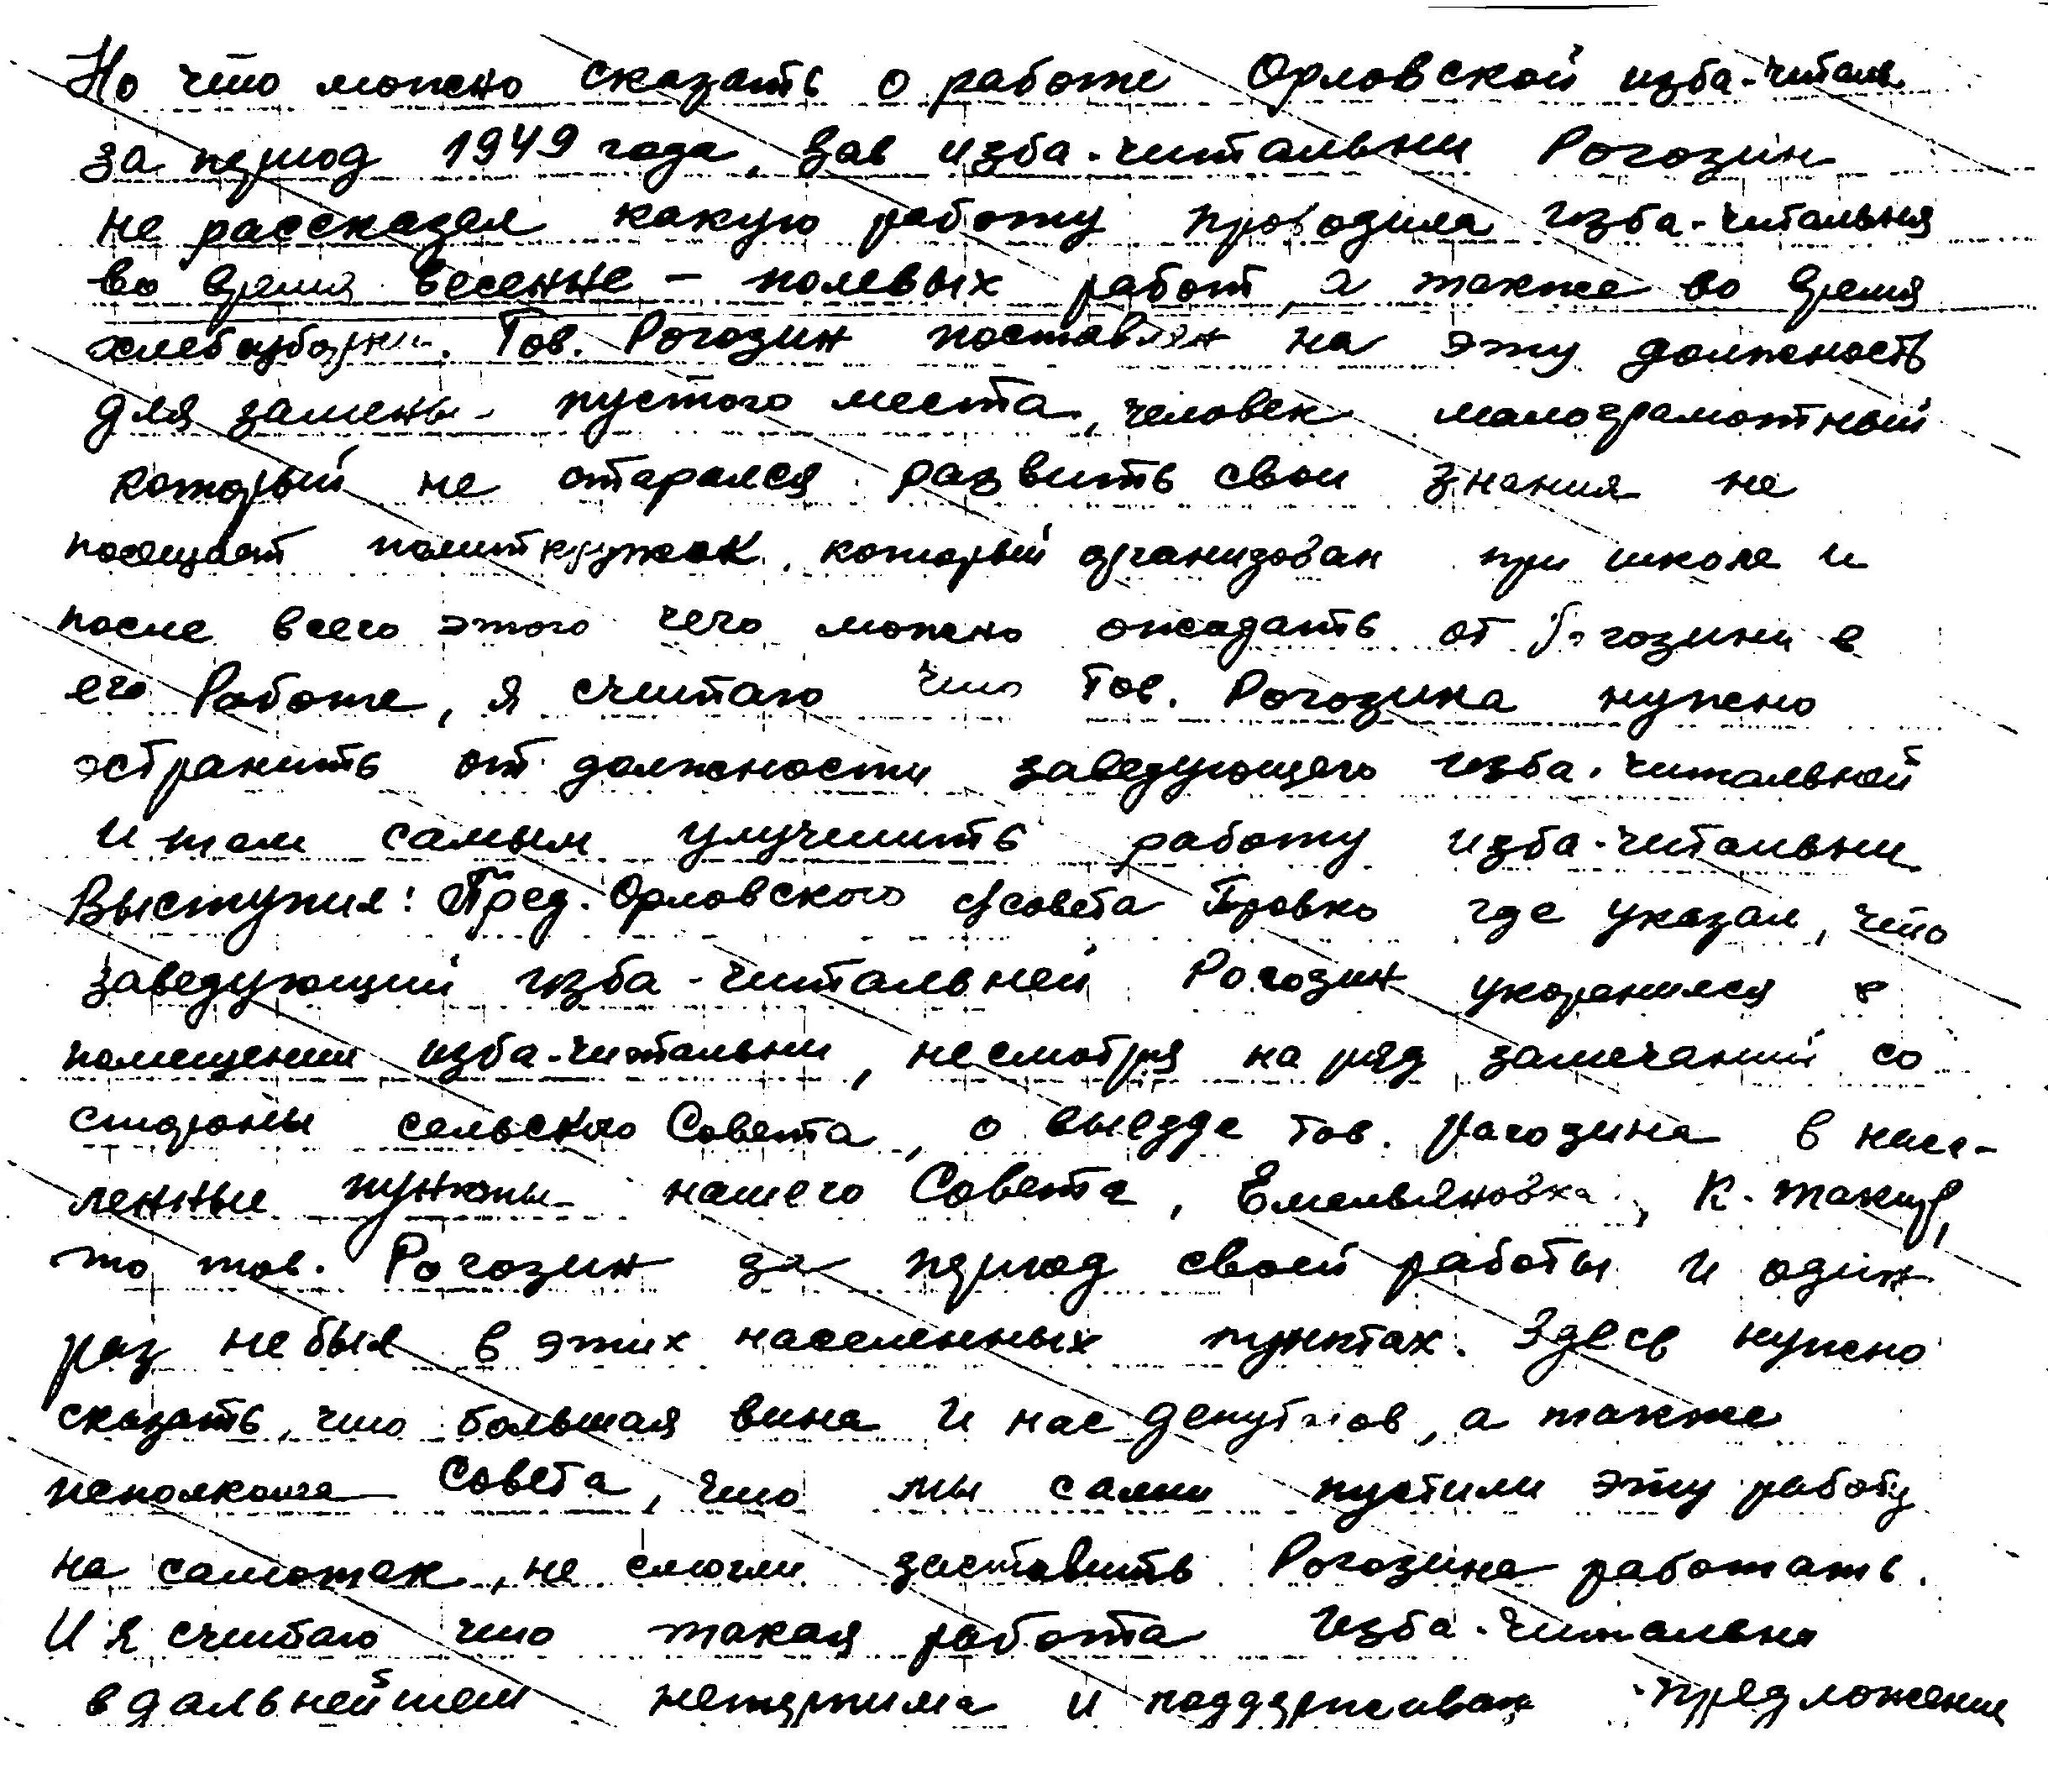 Но что можно сказать о работе Орловской изба-читаль
за период 1949 года, зав изба-читальни Рогозин
не рассказал какую работу проводила изба-читальня
во время весенне - полевых работ, а также во время
хлебоуборки. Тов. Рогозин поставлен на эту должность
для замены пустого места, человек малограмотный
который не старался развить свои знания не
посещает политкружок, который организован при школе и
после всего этого чего можно ожидать от Рогозина в
его Работе, я считаю что Тов. Рогозина нужно
эстранить от должности заведующего изба-читальной
и тем самым улучшить работу изба-читальни
Выступил: Пред. Орловского с/совета где указал, что
заведующий изба-читальней Рогозин укоренился в
помещении изба-читальни, несмотря на ряд замечаний со
стороны сельского Совета, о выезде тов. Рагозина в насе-
ленные пункты нашего Совета, Емельяновка, К-
то тов. Рогозин за период своей работы и один
раз не был в этих населенных пунктах. Здесь нужно
сказать, что большая вина и нас депутатов, а также
исполкома Совета, что мы сами пустили эту работу
на самотек, не смогли заставить Рогозина работать.
И я считаю что такая работа Изба-читальни
в дальнейшем нетерпима и поддерживаю предложение